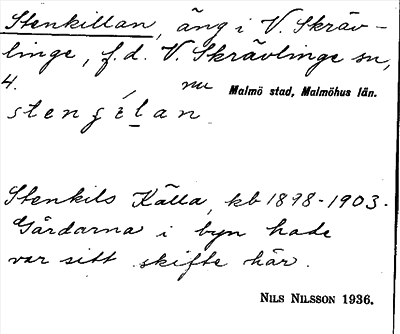 Stenkillan, äng i V. Skräv-
linge, f.d. V. Skrävlinge sn,
4. nu Malmö stad, Malmöhus län.
stengílan
Stenkils Källa, kb 1898-1903.
Gårdarna i byn hade
var sitt skifte här.
NILS NILSSON 1936.